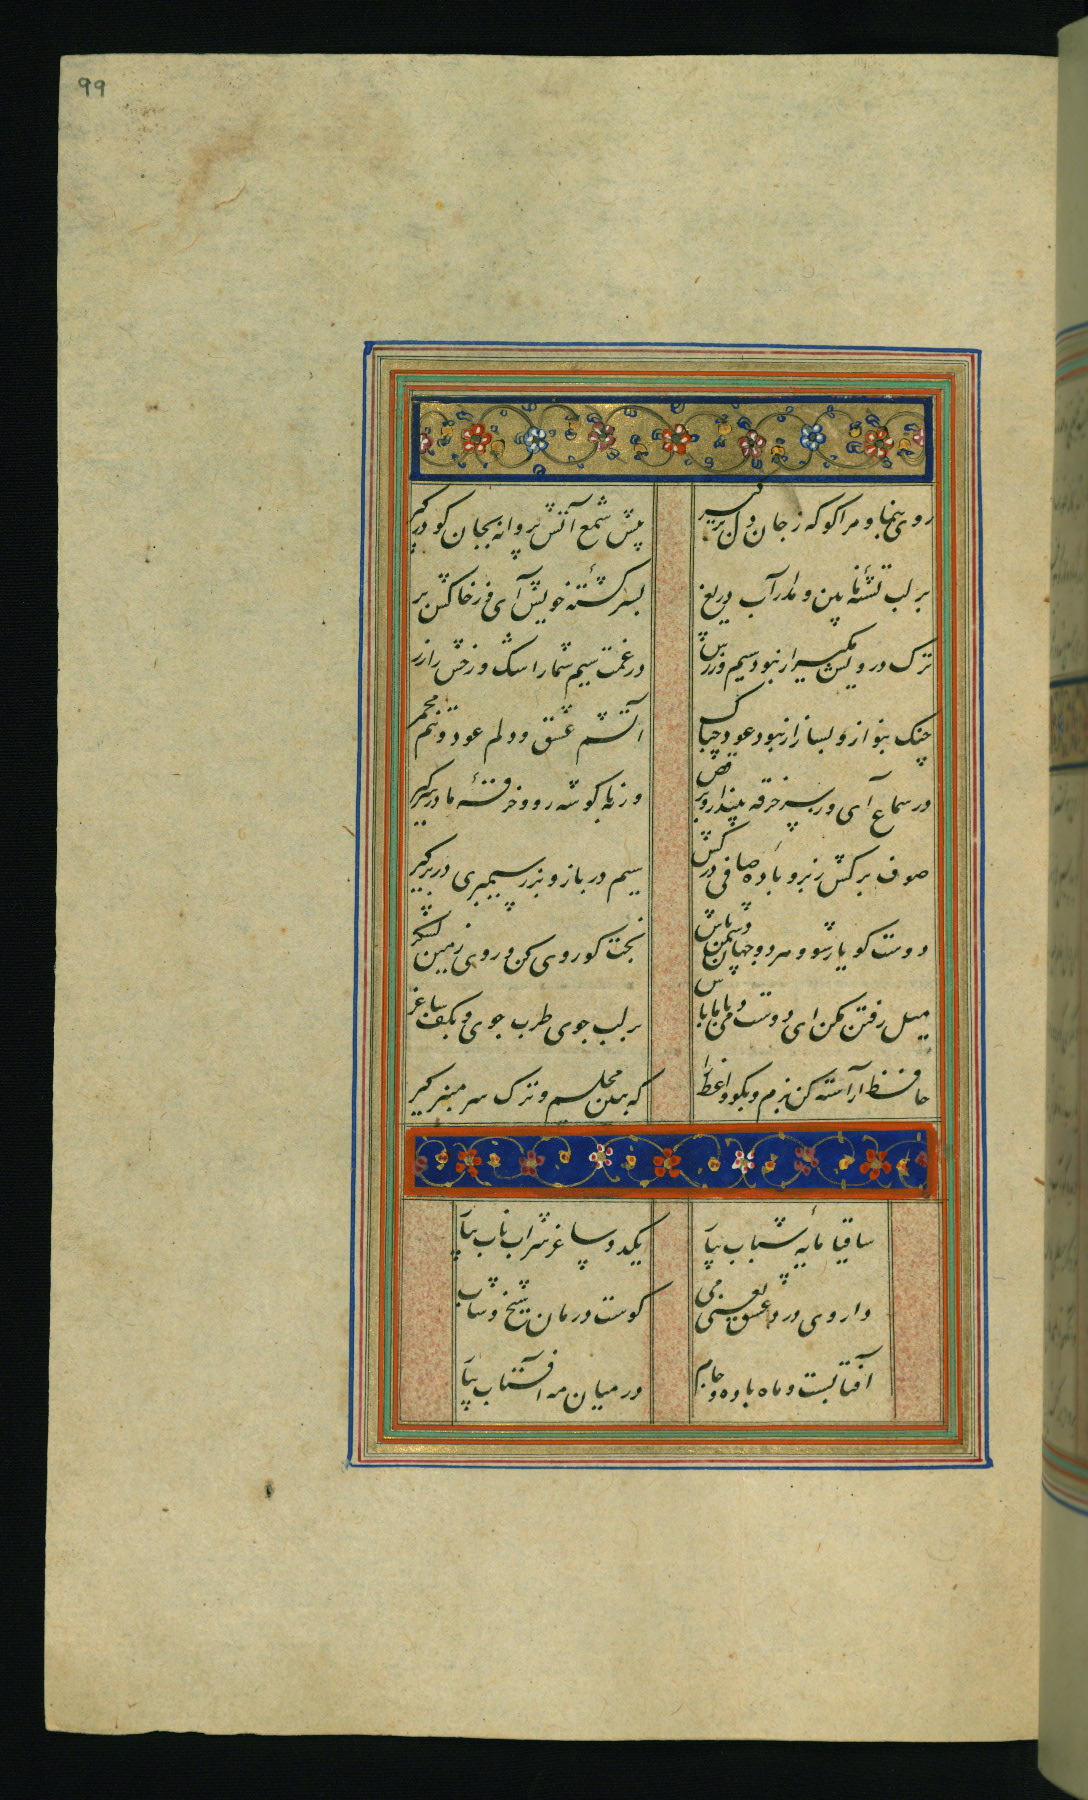 99
روی بنما و مرا کو که ز جان دل برگیر پیش شمع آتش پروانه بجان کو درگیر
بر لب تشنهٔ ما بین و مدار آب دریغ بر سر کشتهٔ خویش آی و ز خاکش برگیر
ترک درویش مکیر ار نبود سیم و زرش در غمت سیم شمار اشک و رخش را زر
چنک بنواز و بساز ار نبود عود چه باک آتشم عشق و دلم عود و تنم مجمر
در سماع آی و ز سر خرقه برانداز و برقص ورنه با کوشه رو و خرقهٔ ما در سر کیر
صوف برکش ز سر و بادهٔ صافی درکش سیم در باز و بزر سیمبری در بر کیر
دوست کو یار شو و هر دو جهان دشمن باش بخت کو روی کن و روی زمین لشکر
میل رفتن مکن ای دوست دمی با ما باش بر لب جوی طرب جوی و بکف ساغر
حافظ آراسته کن بزم و بکو واعظ را که ببین مجلسم و ترک سر منبر کیر
ساقیا مایهٔ شباب بیا یکدو ساغر شراب ناب بیا
داروی درد عشق یعنی می کوست درمان شیخ و شاب
آفتابست و ماه باده و جام در میان مه آفتاب بیا